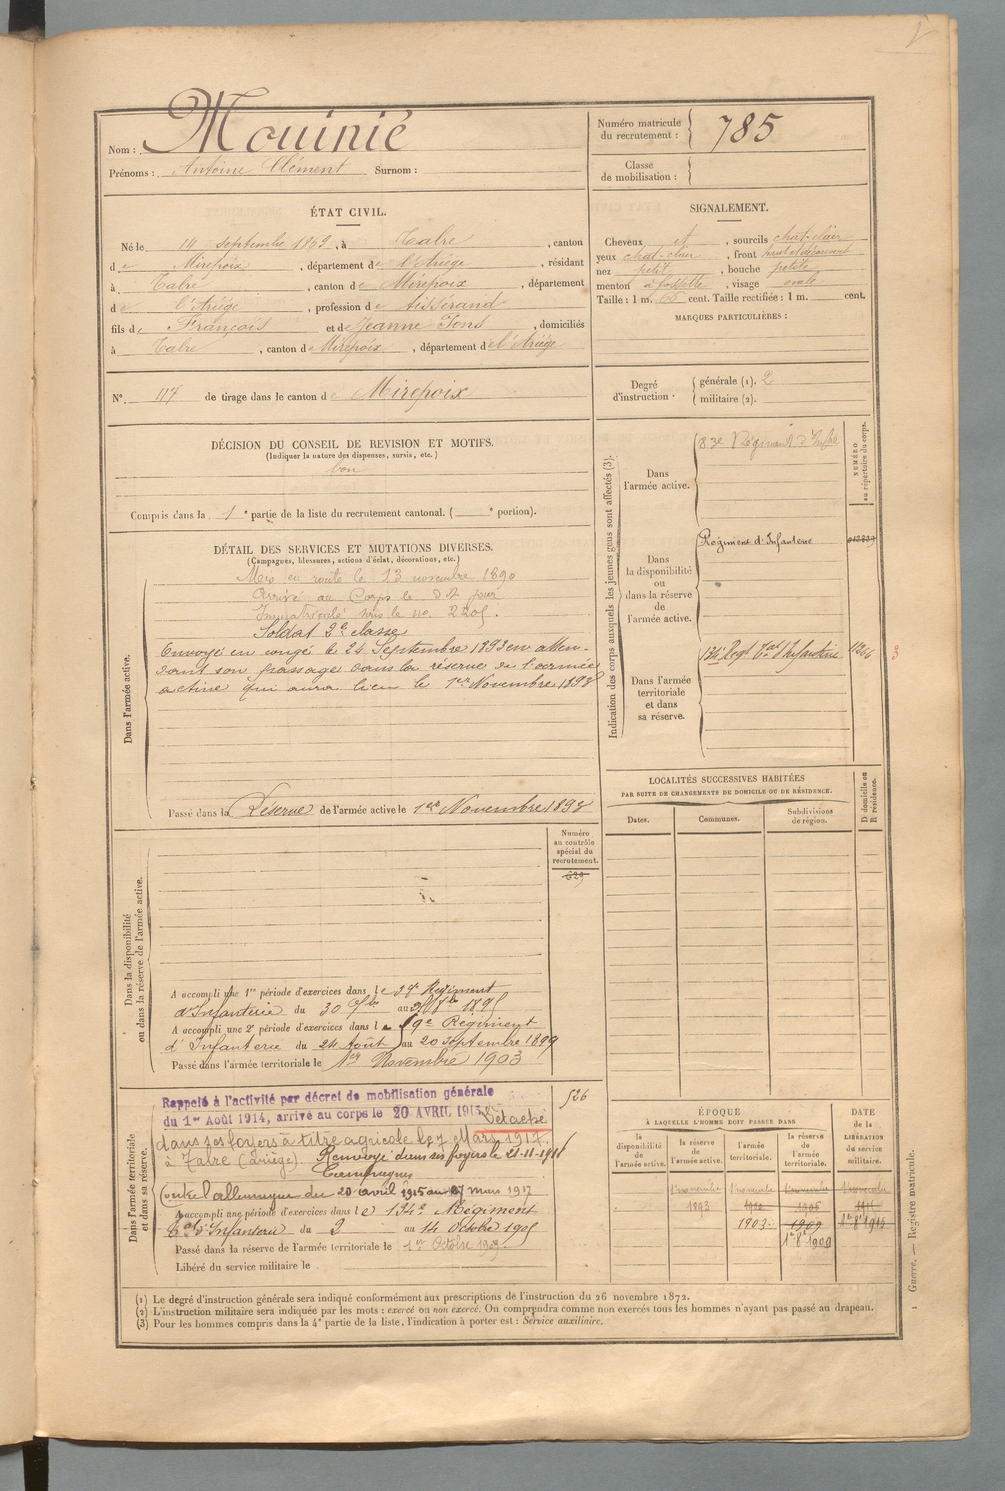 Nom : Mouinié
Prénoms : Antoine Clément Surnom :
Numéro matricule du recrutement : 785
Classe de mobilisation :
ÉTAT CIVIL.
Né le 14 septembre 1869, à Tabre, canton
de Mirepoix, département de l'Ariège, résidant
à Tabre, canton de Mirepoix, département
de l'Ariège, profession de tisserand
fils de François et de Jeanne Fons, domiciliés
à Tabre, canton de Mirepoix, département de l'Ariège
SIGNALEMENT.
Cheveux et, sourcils chat-clair
yeux chat-clair, front haut et découvert
nez petit, bouche petite
menton à fossette, visage ovale
Taille : 1 m. cent. Taille rectifiée : 1 m. cent.
MARQUES PARTICULIÈRES :
N° 117 de tirage dans le canton de Mirepoix
Degré d'instruction : générale (1). 2
militaire (2).
DÉCISION DU CONSEIL DE REVISION ET MOTIFS.
(Indiquer la nature des dispenses, sursis, etc.)
bon
Compris dans la 1e partie de la liste du recrutement cantonal. ( e portion).
DÉTAIL DES SERVICES ET MUTATIONS DIVERSES.
(Campagnes, blessures, actions d'éclat, décorations, etc.)
Dans l'armée active.
Mis en route le 13 novembre 1890
Arrivé au Corps le dit jour
Immatriculé sous le no. 2205.
Soldat 2e classe
Envoyé en congé le 24 Septembre 1893 en atten-
dant son passage dans la réserve de l'armée
active qui aura lieu le 1er Novembre 1893
Passé dans la Réserve de l'armée active le 1er Novembre 1893
Indication des corps auxquels les jeunes gens sont affectés (3).
NUMÉRO au répertoire du corps.
Dans l'armée active.
83e Régiment d'Infie
Dans la disponibilité ou dans la réserve de l'armée active.
Régiment d'Infanterie
Dans l'armée territoriale et dans sa réserve.
134e Regt tal d'Infanterie
LOCALITÉS SUCCESSIVES HABITÉES
PAR SUITE DE CHANGEMENTS DE DOMICILE OU DE RÉSIDENCE.
Dates. Communes. Subdivisions de région. D domicile ou R résidence.
Dans la disponibilité ou dans la réserve de l'armée active.
Numéro au contrôle spécial du recrutement.
629
A accompli une 1re période d'exercices dans le Régiment
d'Infanterie du 30 7bre au 8bre 1895
A accompli une 2e période d'exercices dans le 59e Régiment
d'Infanterie du 24 Août au 20 septembre 1899
Passé dans l'armée territoriale le 1er Novembre 1903
Dans l'armée territoriale et dans sa réserve.
526
Rappelé à l'activité par décret de mobilisation générale
du 1er Août 1914, arrivé au corps le 20 AVRIL 1915 Détaché
dans ses foyers à titre agricole le 7 Mars 1917.
à Tabre (Ariège). Renvoyé dans ses foyers le 21-11-1918
Campagnes
Contre l'allemagne du 20 avril 1915 au 07 mars 1917
A accompli une période d'exercices dans le 134e Régiment
tal d'Infanterie du 3 au 14 Octobre 1905
Passé dans la réserve de l'armée territoriale le 1er Octobre 1909.
Libéré du service militaire le
ÉPOQUE
À LAQUELLE L'HOMME DOIT PASSER DANS
la disponibilité de l'armée active. la réserve de l'armée active. l'armée territoriale. la réserve de l'armée territoriale.
DATE de la LIBÉRATION du service militaire.
1er novembre
1893
1903
1909
1er 8bre 1909
(1) Le degré d'instruction générale sera indiqué conformément aux prescriptions de l'instruction du 26 novembre 1872.
(2) L'instruction militaire sera indiquée par les mots : exercé ou non exercé. On comprendra comme non exercés tous les hommes n'ayant pas passé au drapeau.
(3) Pour les hommes compris dans la 4e partie de la liste, l'indication à porter est : Service auxiliaire.
1 Guerre. — Registre matricule.